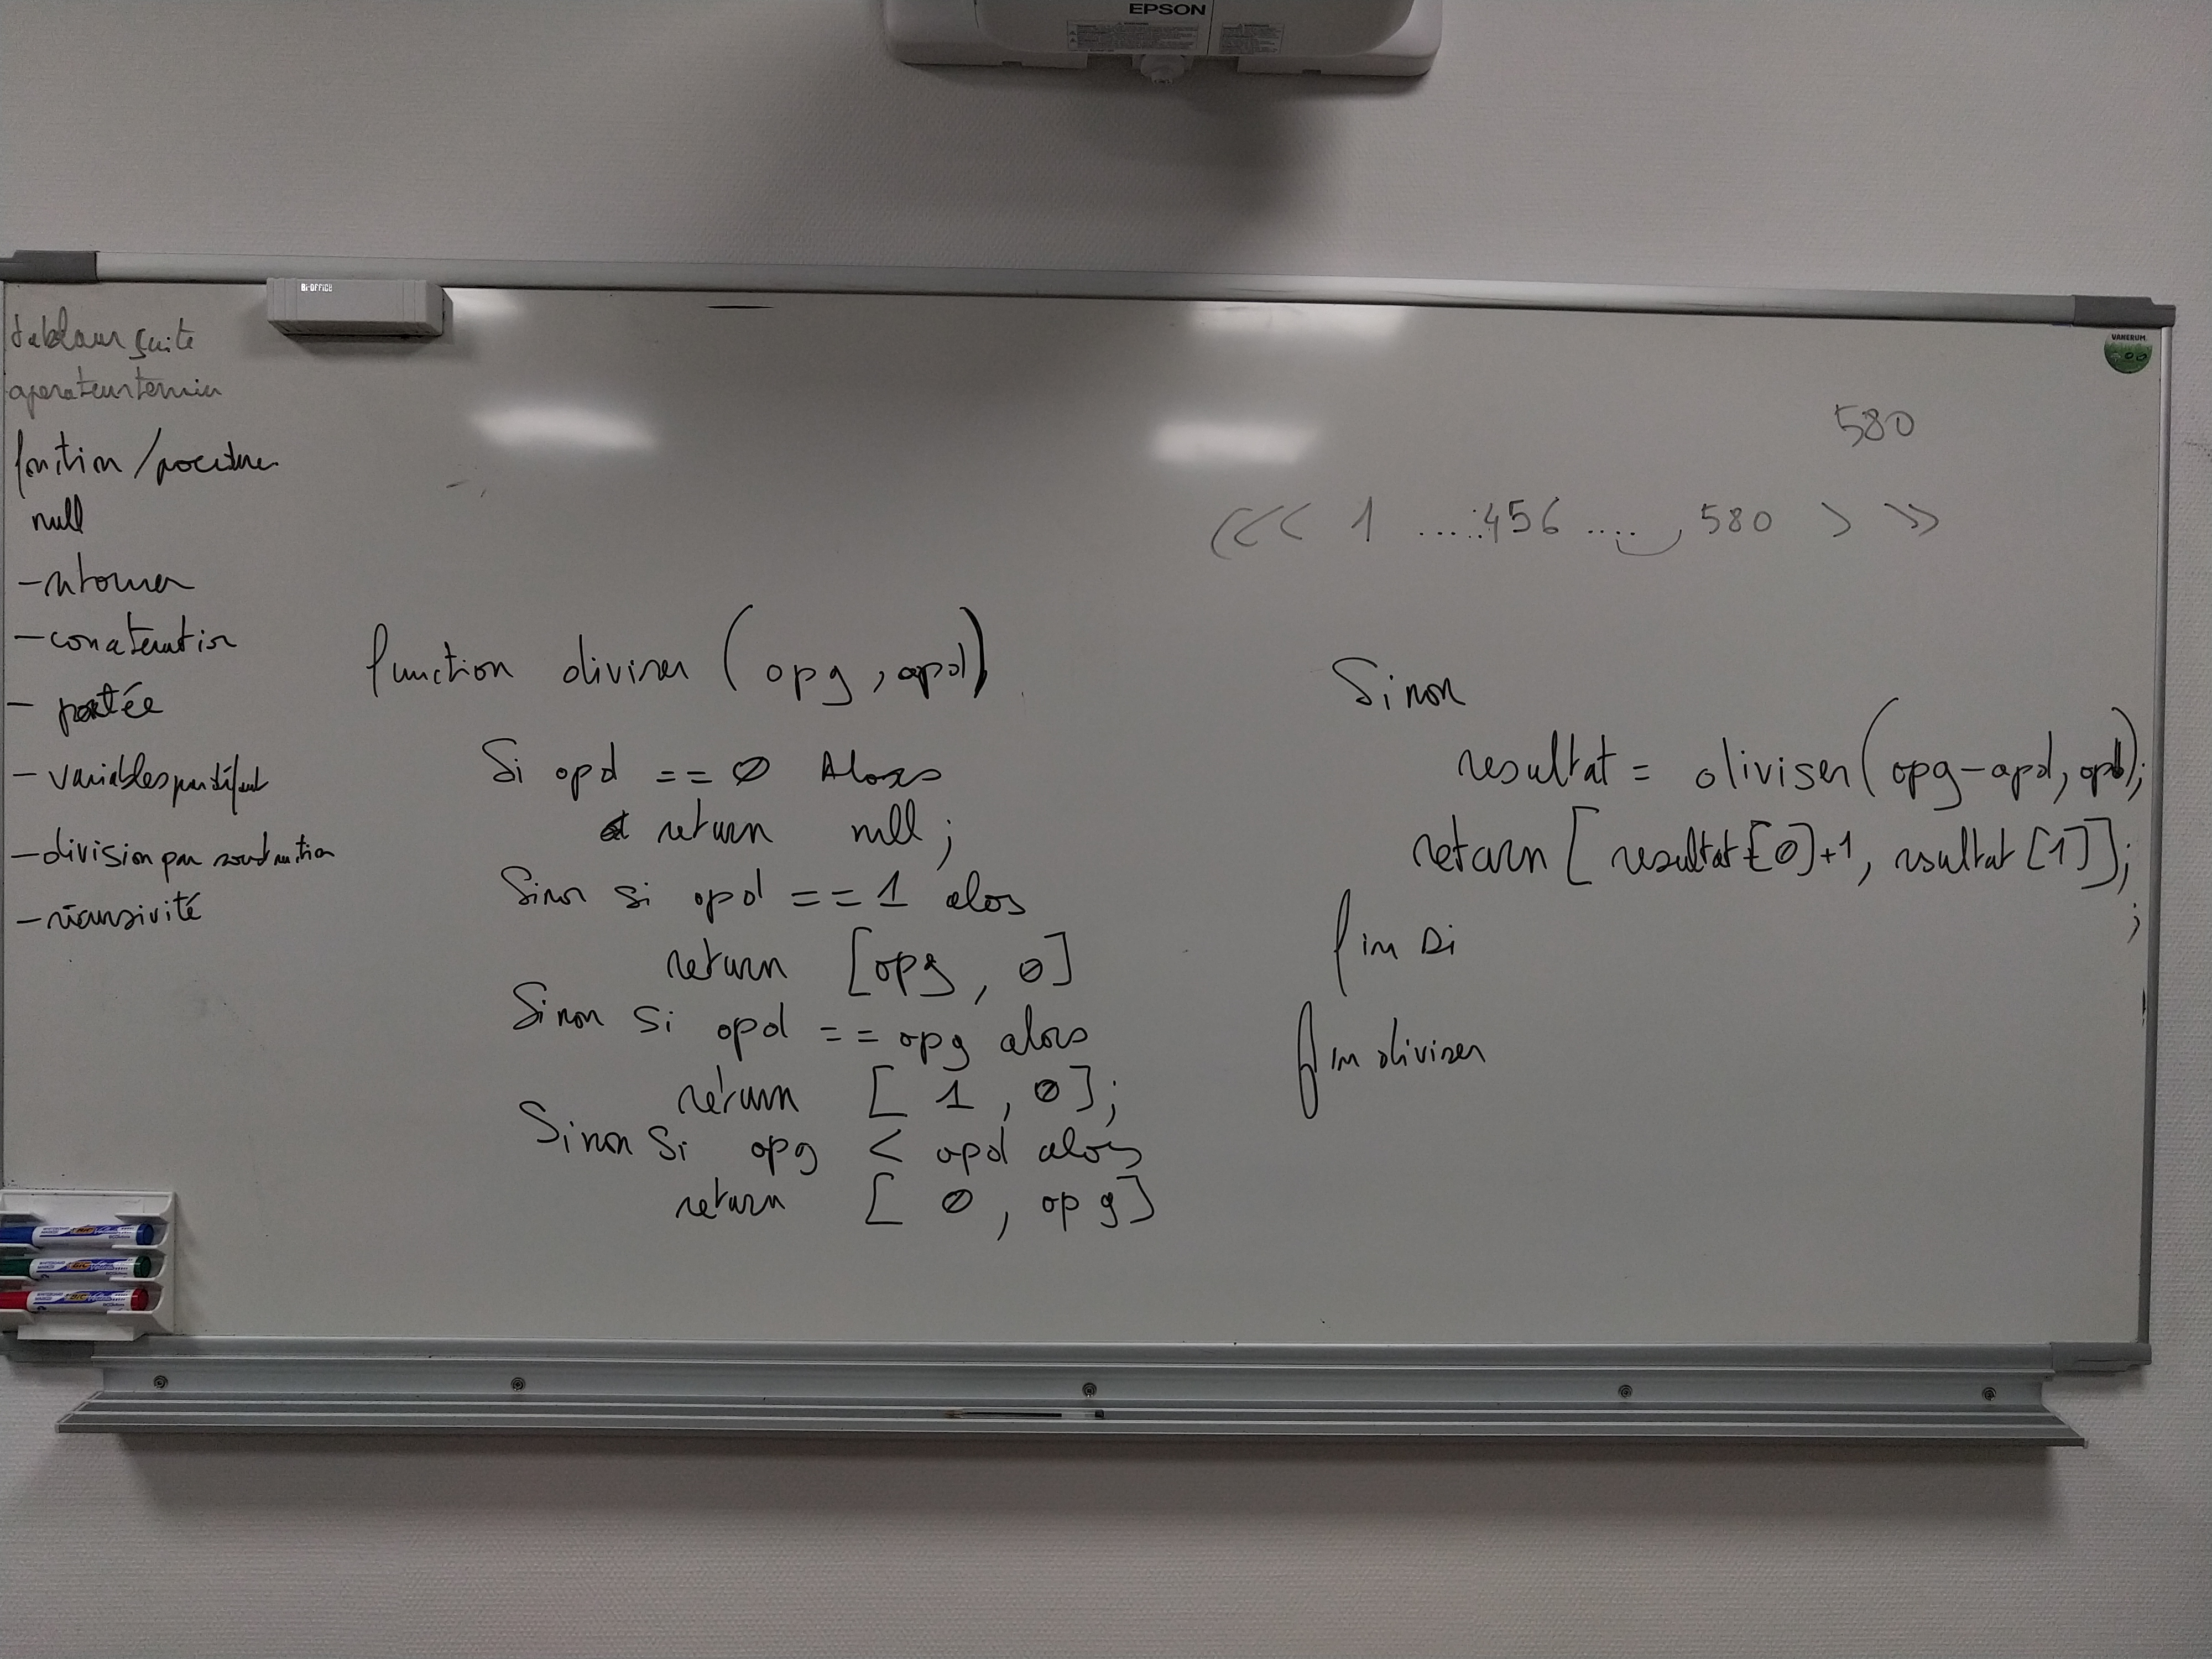 EPSON
Bi-OFFICE
VANERUM
tableaux suite
operateur ternin
fonction / procedure
null
- retourner
- concatenation
- portée
- variables par défaut
- division par soustraction
- récursivité
580
<< 1 ....:456 .... 580 > >>
function diviser (opg, opd)
Si opd == 0 Alors
return null ;
Sinon si opd == 1 alos
return [opg, 0]
Sinon Si opd == opg alors
return [ 1 , 0];
Sinon Si opg < opd alors
return [ 0 , opg]
Sinon
resultat = diviser (opg-opd, opd);
return [ resultat[0]+1, resultat [1]];
;
fin si
fin diviser